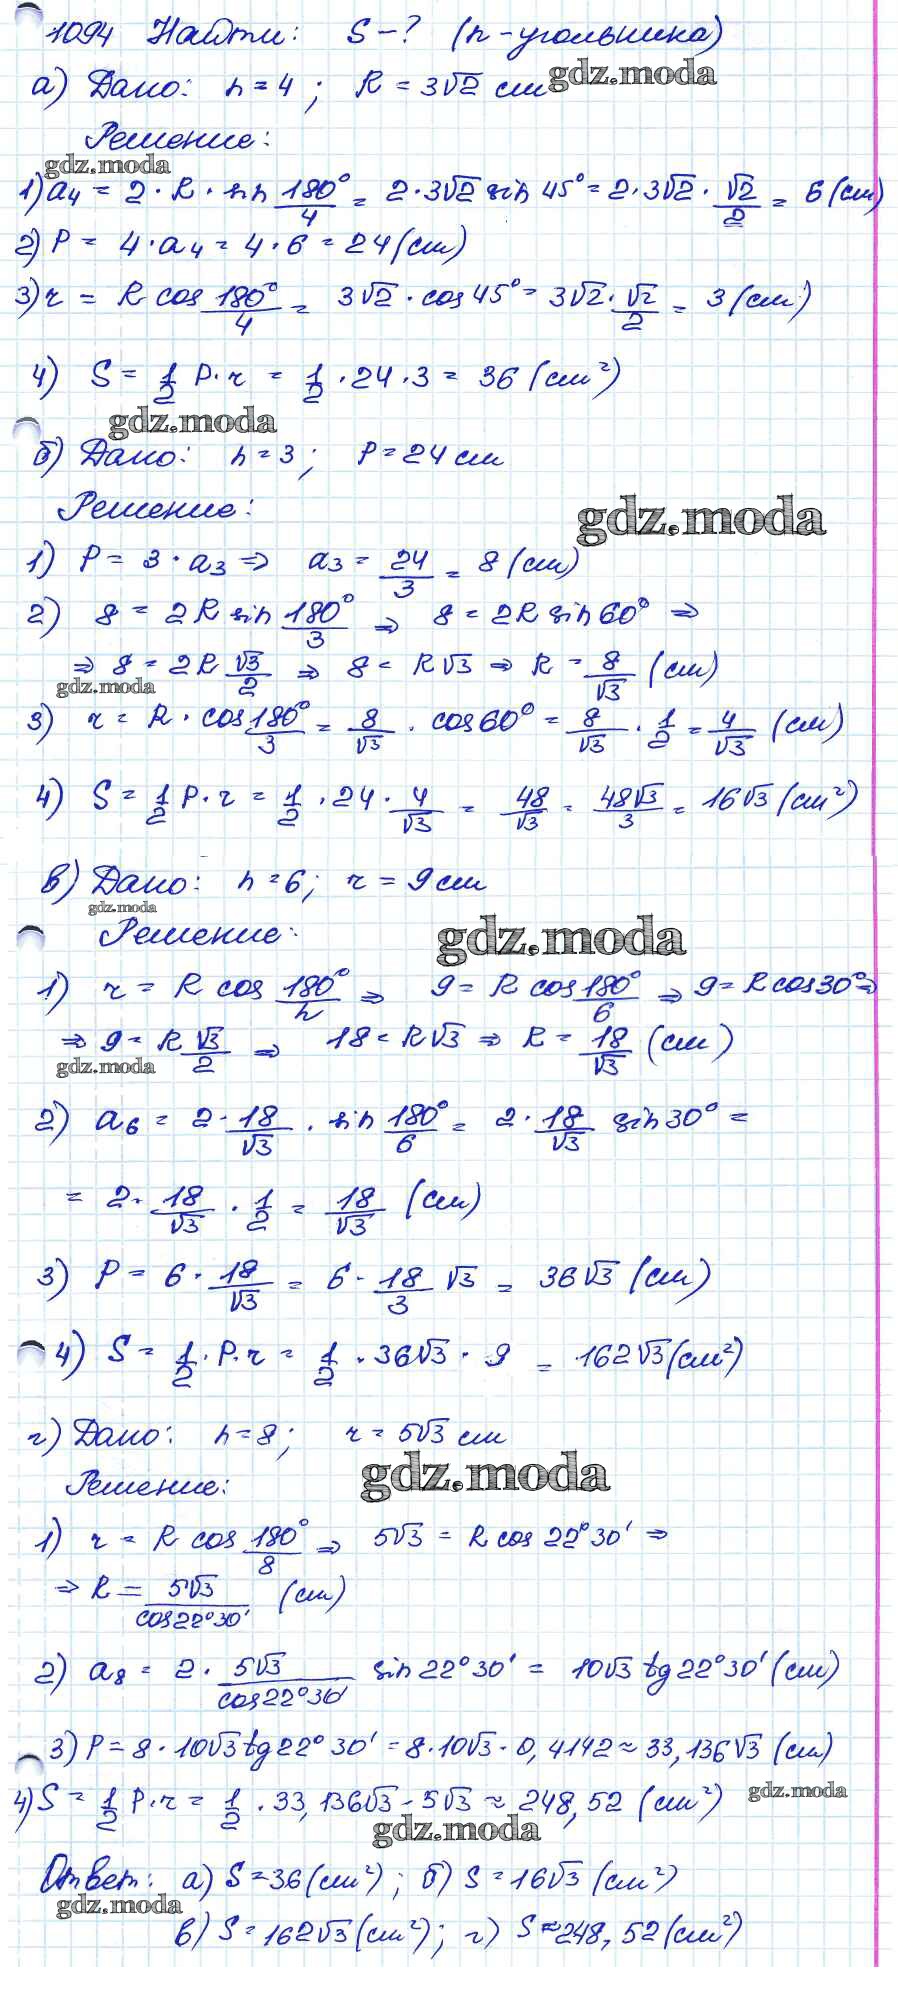 1094 Найти: S-? (n-угольника)
а) Дано: n=4; R=3√2 см gdz.moda
Решение:
gdz.moda
1) a₄ = 2·R·sin 180°/4 = 2·3√2 sin 45° = 2·3√2·√2/2 = 6 (см)
2) P = 4·a₄ = 4·6 = 24 (см)
3) r = R cos 180°/4 = 3√2·cos 45° = 3√2·√2/2 = 3 (см)
4) S = 1/2 P·r = 1/2·24·3 = 36 (см²)
gdz.moda
б) Дано: n=3; P=24 см
Решение: gdz.moda
1) P = 3·a₃ ⇒ a₃ = 24/3 = 8 (см)
2) 8 = 2R sin 180°/3 ⇒ 8 = 2R sin 60° ⇒
⇒ 8 = 2R √3/2 ⇒ 8 = R√3 ⇒ R = 8/√3 (см)
gdz.moda
3) r = R·cos 180°/3 = 8/√3·cos 60° = 8/√3·1/2 = 4/√3 (см)
4) S = 1/2 P·r = 1/2·24·4/√3 = 48/√3 = 48√3/3 = 16√3 (см²)
в) Дано: n=6; r=9 см
gdz.moda
Решение: gdz.moda
1) r = R cos 180°/n ⇒ 9 = R cos 180°/6 ⇒ 9 = R cos 30° ⇒
⇒ 9 = R √3/2 ⇒ 18 = R√3 ⇒ R = 18/√3 (см)
gdz.moda
2) a₆ = 2·18/√3·sin 180°/6 = 2·18/√3 sin 30° =
= 2·18/√3·1/2 = 18/√3 (см)
3) P = 6·18/√3 = 6·18/3 √3 = 36√3 (см)
4) S = 1/2·P·r = 1/2·36√3·9 = 162√3 (см²)
г) Дано: n=8; r=5√3 см
Решение: gdz.moda
1) r = R cos 180°/8 ⇒ 5√3 = R cos 22°30' ⇒
⇒ R = 5√3/cos 22°30' (см)
2) a₈ = 2·5√3/cos 22°30' sin 22°30' = 10√3 tg 22°30' (см)
3) P = 8·10√3 tg 22°30' = 8·10√3·0,4142 ≈ 33,136√3 (см)
4) S = 1/2 P·r = 1/2·33,136√3·5√3 ≈ 248,52 (см²) gdz.moda
gdz.moda
Ответ: а) S=36 (см²); б) S=16√3 (см²)
gdz.moda
в) S=162√3 (см²); г) S≈248,52 (см²)